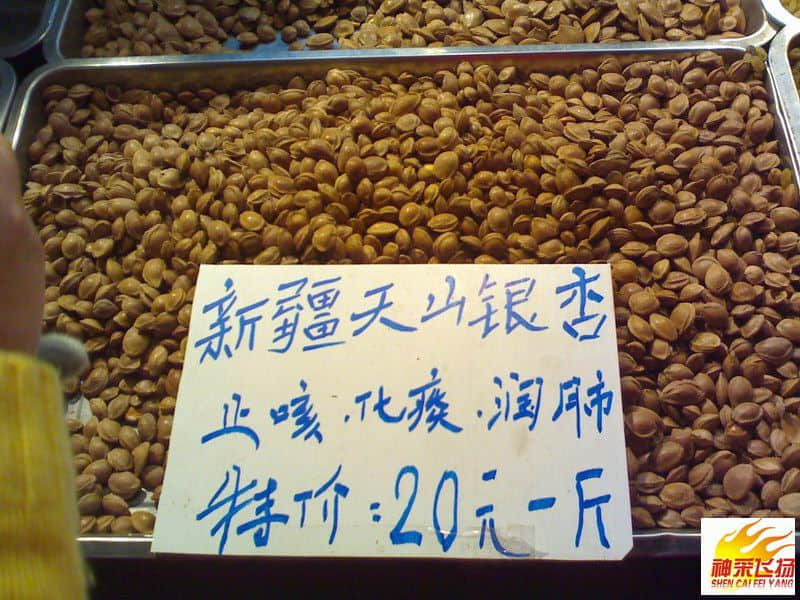 新疆天山银杏
止咳.化痰.润肺
特价:20元一斤
神采飞扬
SHEN CAI FEI YANG